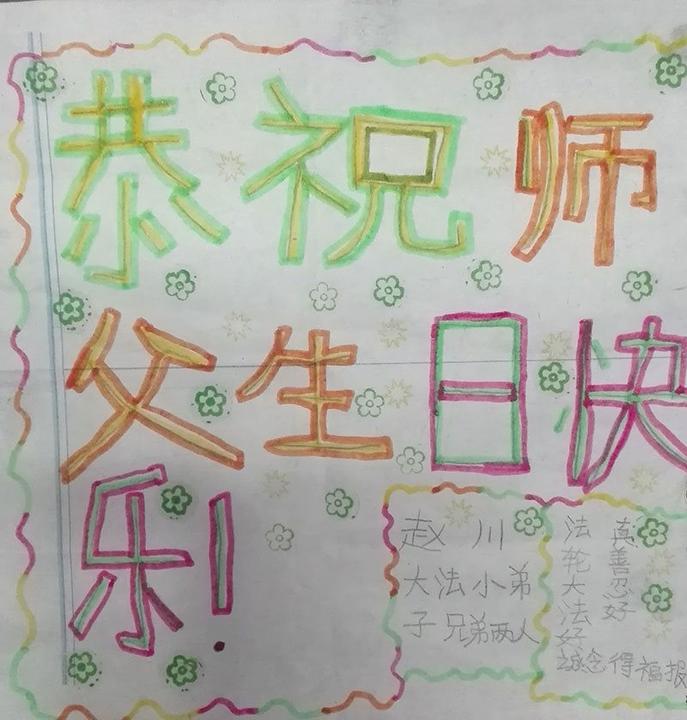 恭祝师
父生日快
乐!
赵川
大法小弟
子兄弟两人
真善忍好
法轮大法好
诚念得福报